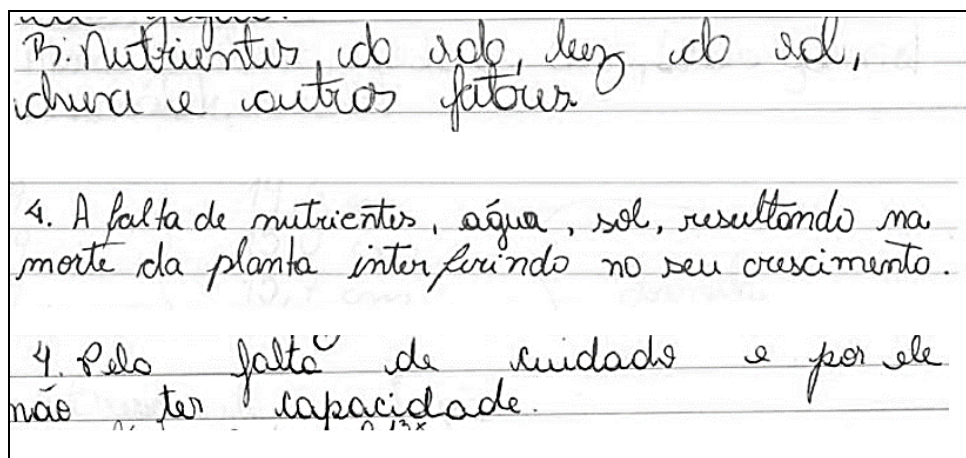 B. Nutrientes, do solo, luz do sol,
chuva e outros fatores
4. A falta de nutrientes, água, sol, resultando na
morte da planta interferindo no seu crescimento.
4. Pelo falta de cuidado e por ele
não ter capacidade.